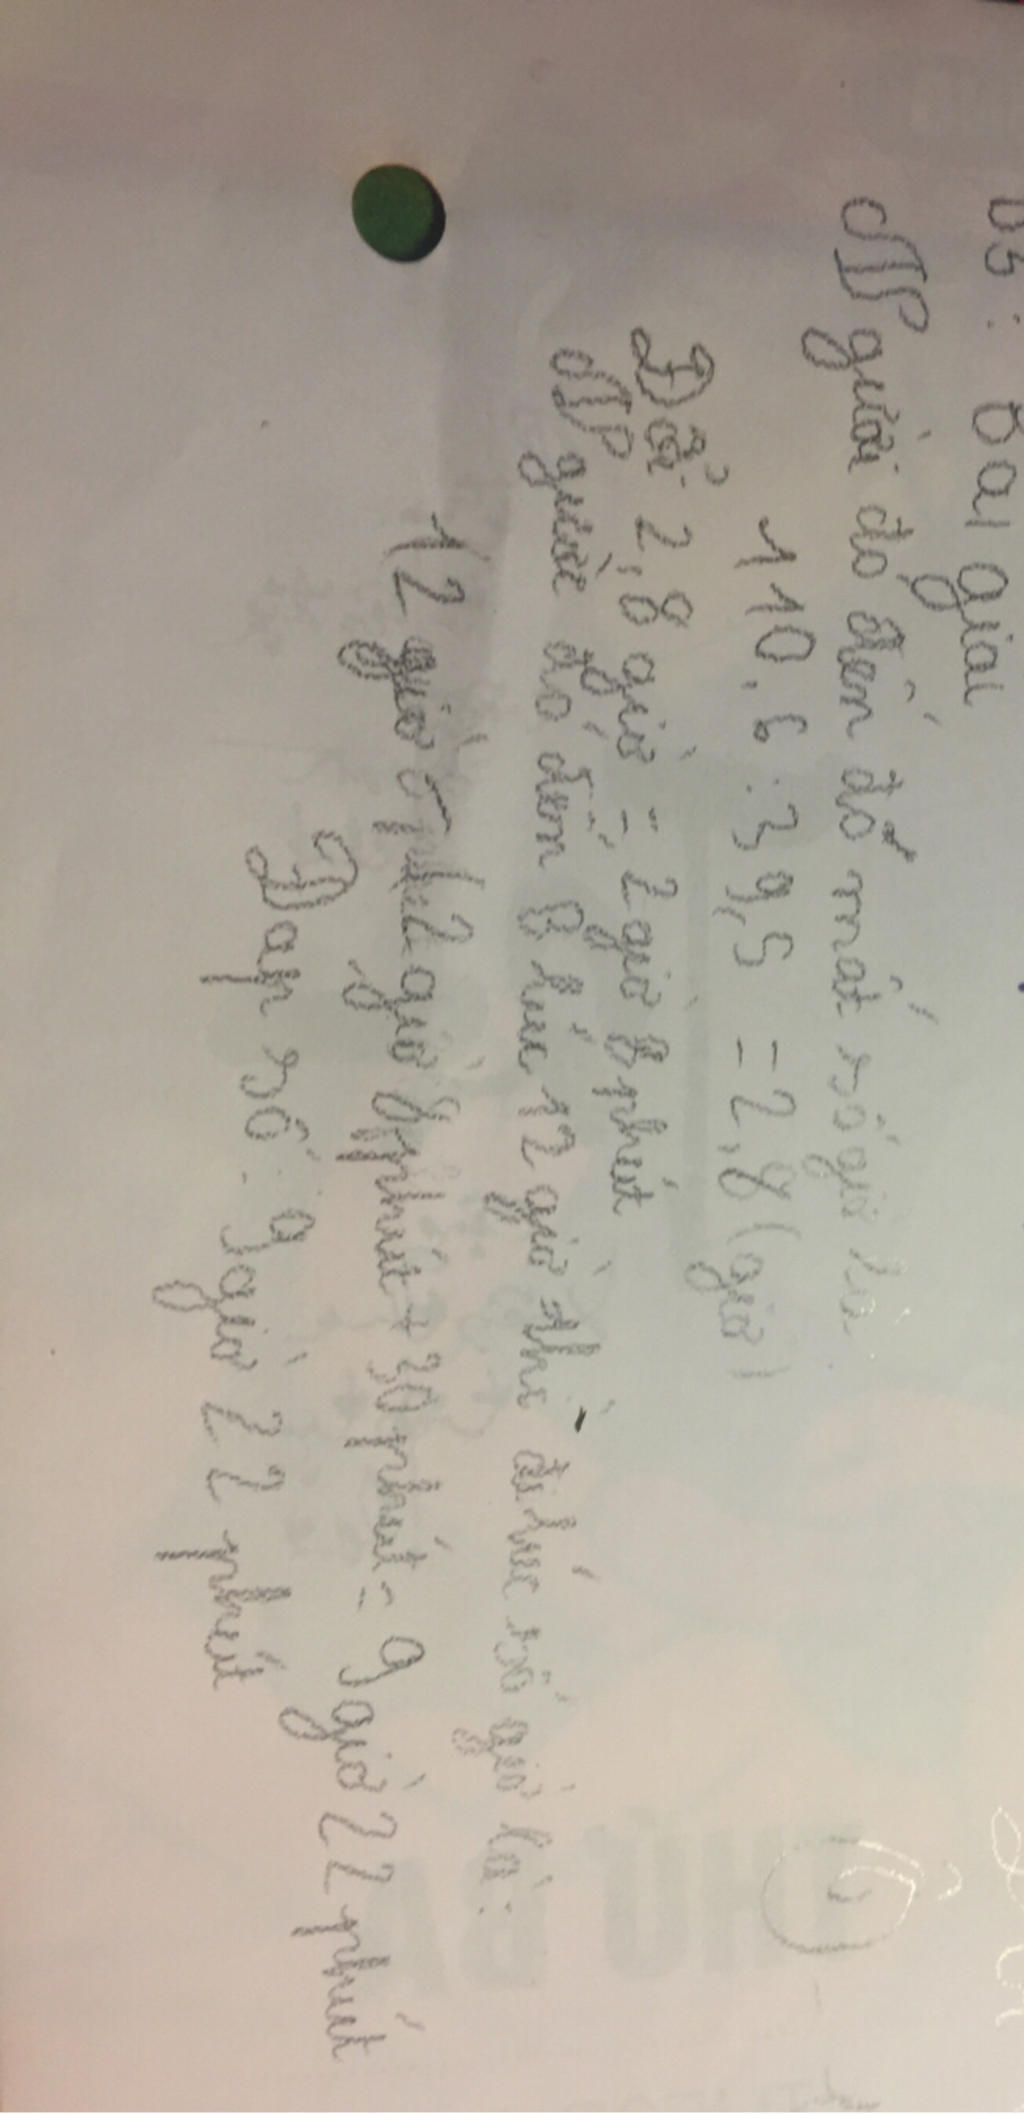 B5: Bài giải
Nếu người đó đến đó mất số giờ là
110,6 : 39,5 = 2,8 (giờ)
Đổi 2,8 giờ = 2 giờ 8 phút
người đó đến B lúc 12 giờ thì đi lúc số giờ là:
12 giờ - 2 giờ 8 phút + 30 phút = 9 giờ 22 phút
Đáp số: 9 giờ 22 phút
THỨ BA